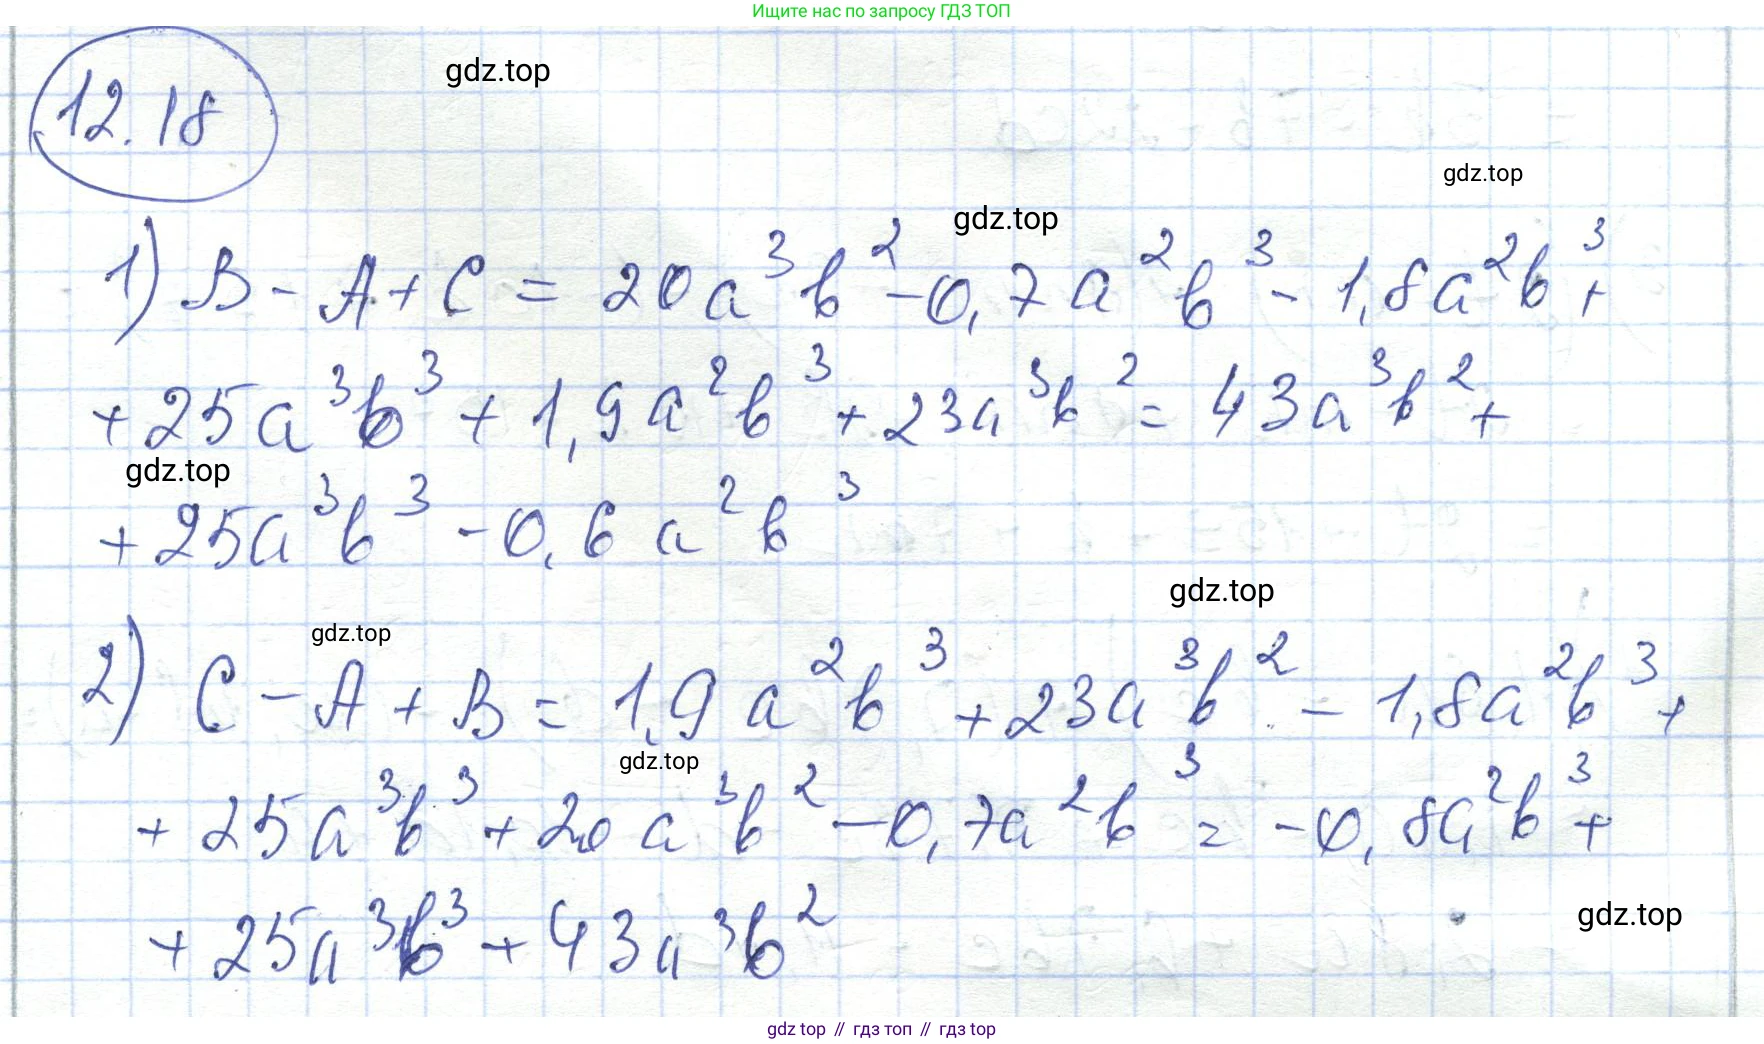 Ищите нас по запросу ГДЗ ТОП
12.18
gdz.top
gdz.top
gdz.top
1) B - A + C = 20a³b² - 0,7a²b³ - 1,8a²b³ +
+ 25a³b³ + 1,9a²b³ + 23a³b² = 43a³b² +
gdz.top
+ 25a³b³ - 0,6a²b³
gdz.top
gdz.top
2) C - A + B = 1,9a²b³ + 23a³b² - 1,8a²b³ +
gdz.top
+ 25a³b³ + 20a³b² - 0,7a²b³ = -0,8a²b³ +
gdz.top
+ 25a³b³ + 43a³b²
gdz top // гдз топ // gdz top